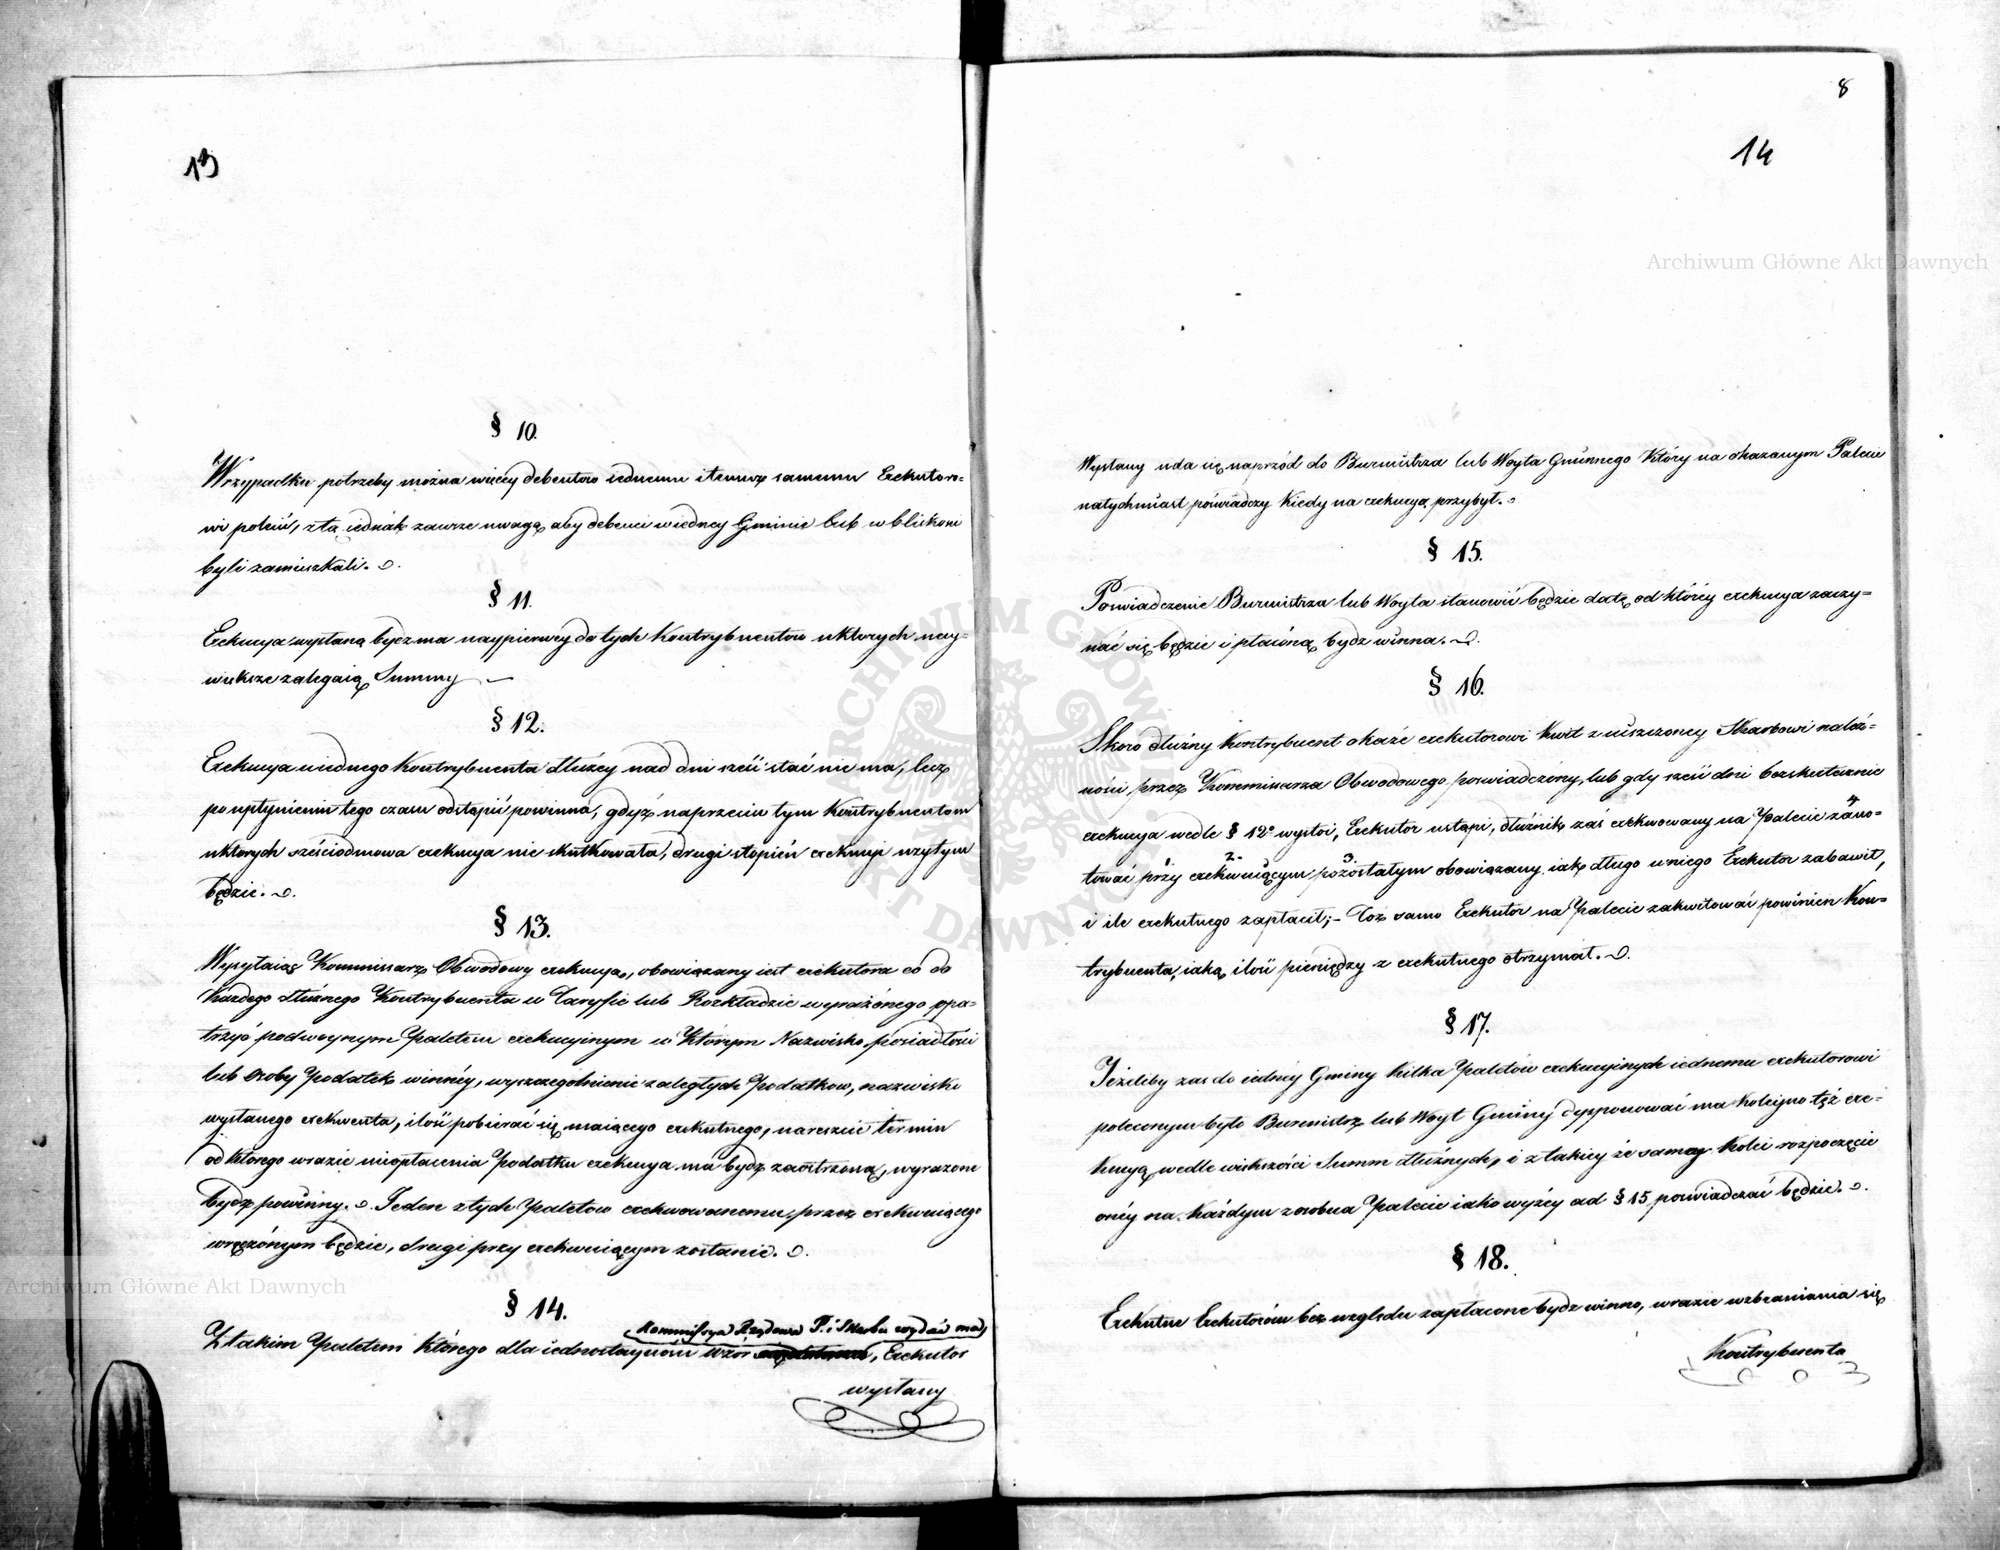 13
§ 10.
W przypadku potrzeby można więcey debentów iednemu i temuż samemu Exekutoro=
wi polecić, z tą iednak zawsze uwagą, aby debenci w iedney Gminie lub w bliskości
byli zamieszkali.
§ 11.
Exekucya wysłaną bydz ma naypierwey do tych Kontrybuentów u których nay=
większe zalegaią Summy
§ 12.
Exekucya u iednego Kontrybuenta dłużey nad dni sześć stać nie ma, lecz
po upłynieniu tego czasu odstąpić powinna, gdyż naprzeciw tym Kontrybuentom
u ktorych sześciodniowa exekucya nie skutkowała, drugi stopień exekucyi użytym
będzie.
§ 13.
Wysyłaiąc Kommissarz Obwodowy exekucyą, obowiązany iest exekutora co do
każdego dłużnego Kontrybuenta w Taryfie lub Rozkładzie wyrażonego opa=
trzyć podwoynym Paletem exekucyinym w którym Nazwisko posiadłości
lub osoby Podatek winney, wyszczegolnienie zaległych Podatkow, nazwisko
wysłanego exekwenta, ilość pobierać się maiącego exekutnego, nareszcie termin
od którego w razie nieopłacenia Podatku exekucya ma bydź zaostrzoną, wyrażone
bydź powinny. Jeden z tych Paletów exekwowanemu, przez exekwuiącego
wręczonym będzie, drugi przy exekwuiącym zostanie.
§ 14.
Kommissya Rządowa P. i Skarbu wydać ma,
Z takim Paletem którego dla iednostayności wzór , Exekutor
wysłany
8
14
Wysłany uda się naprzód do Burmistrza lub Woyta Gminnego który na okazanym Palecie
natychmiast poświadczy kiedy na exekucyą przybył.
§ 15.
Poswiadczenie Burmistrza lub Woyta stanowić będzie datę od któréy exekucya zaczy=
nać się będzie i płaconą bydz winna.
§ 16.
Skoro dłużny Kontrybuent okaże exekutorowi kwit z uiszczoney Skarbowi należ=
ności, przez Kommissarza Obwodowego poswiadczony, lub gdy sześć dni bezskutecznie
exekucya wedle § 12º wystoi, Exekutor ustąpi, dłużnik zaś exekwowany na Palecie zano=
tować przy exekwuiącym pozostałym obowiązany iak długo u niego Exekutor zabawił,
i ile exekutnego zapłacił;– Toż samo Exekutor na Palecie zakwitować powinien Kon=
trybuenta, iaką ilość pieniędzy z exekutnego otrzymał.
§ 17.
Jeżeliby zas do iedney Gminy kilka Paletów exekucyinych iednemu exekutorowi
poleconym było Burmistrz lub Woyt Gminy dysponować ma koleyno też exe=
kucyą wedle wiekszości Summ dłużnych, i z takiey że samey kolei rozpoczęcie
onéy na każdym z osobna Palecie iako wyżéy ad § 15 poswiadczać będzie.
§ 18.
Exekutne Exekutorom bez względu zapłacone bydz winno, w razie wzbraniania się
Kontrybuenta
Archiwum Główne Akt Dawnych
Archiwum Główne Akt Dawnych
ARCHIWUM GŁÓWNE AKT DAWNYCH